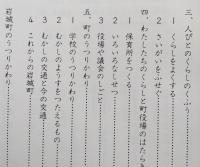 三、人びとのくらしのくふう
1 くらしをよくする
2 さいがいをふせぐ
四、わたしたちのくらしと町役場のはたらき
1 保育所をつくる
2 いろいろなしせつ
3 役場や議会のしごと
五、町のうつりかわり
1 学校のうつりかわり
2 むかしのようすをつたえるもの
3 むかしの交通と今の交通
4 これからの岩城町
岩城町のうつりかわり